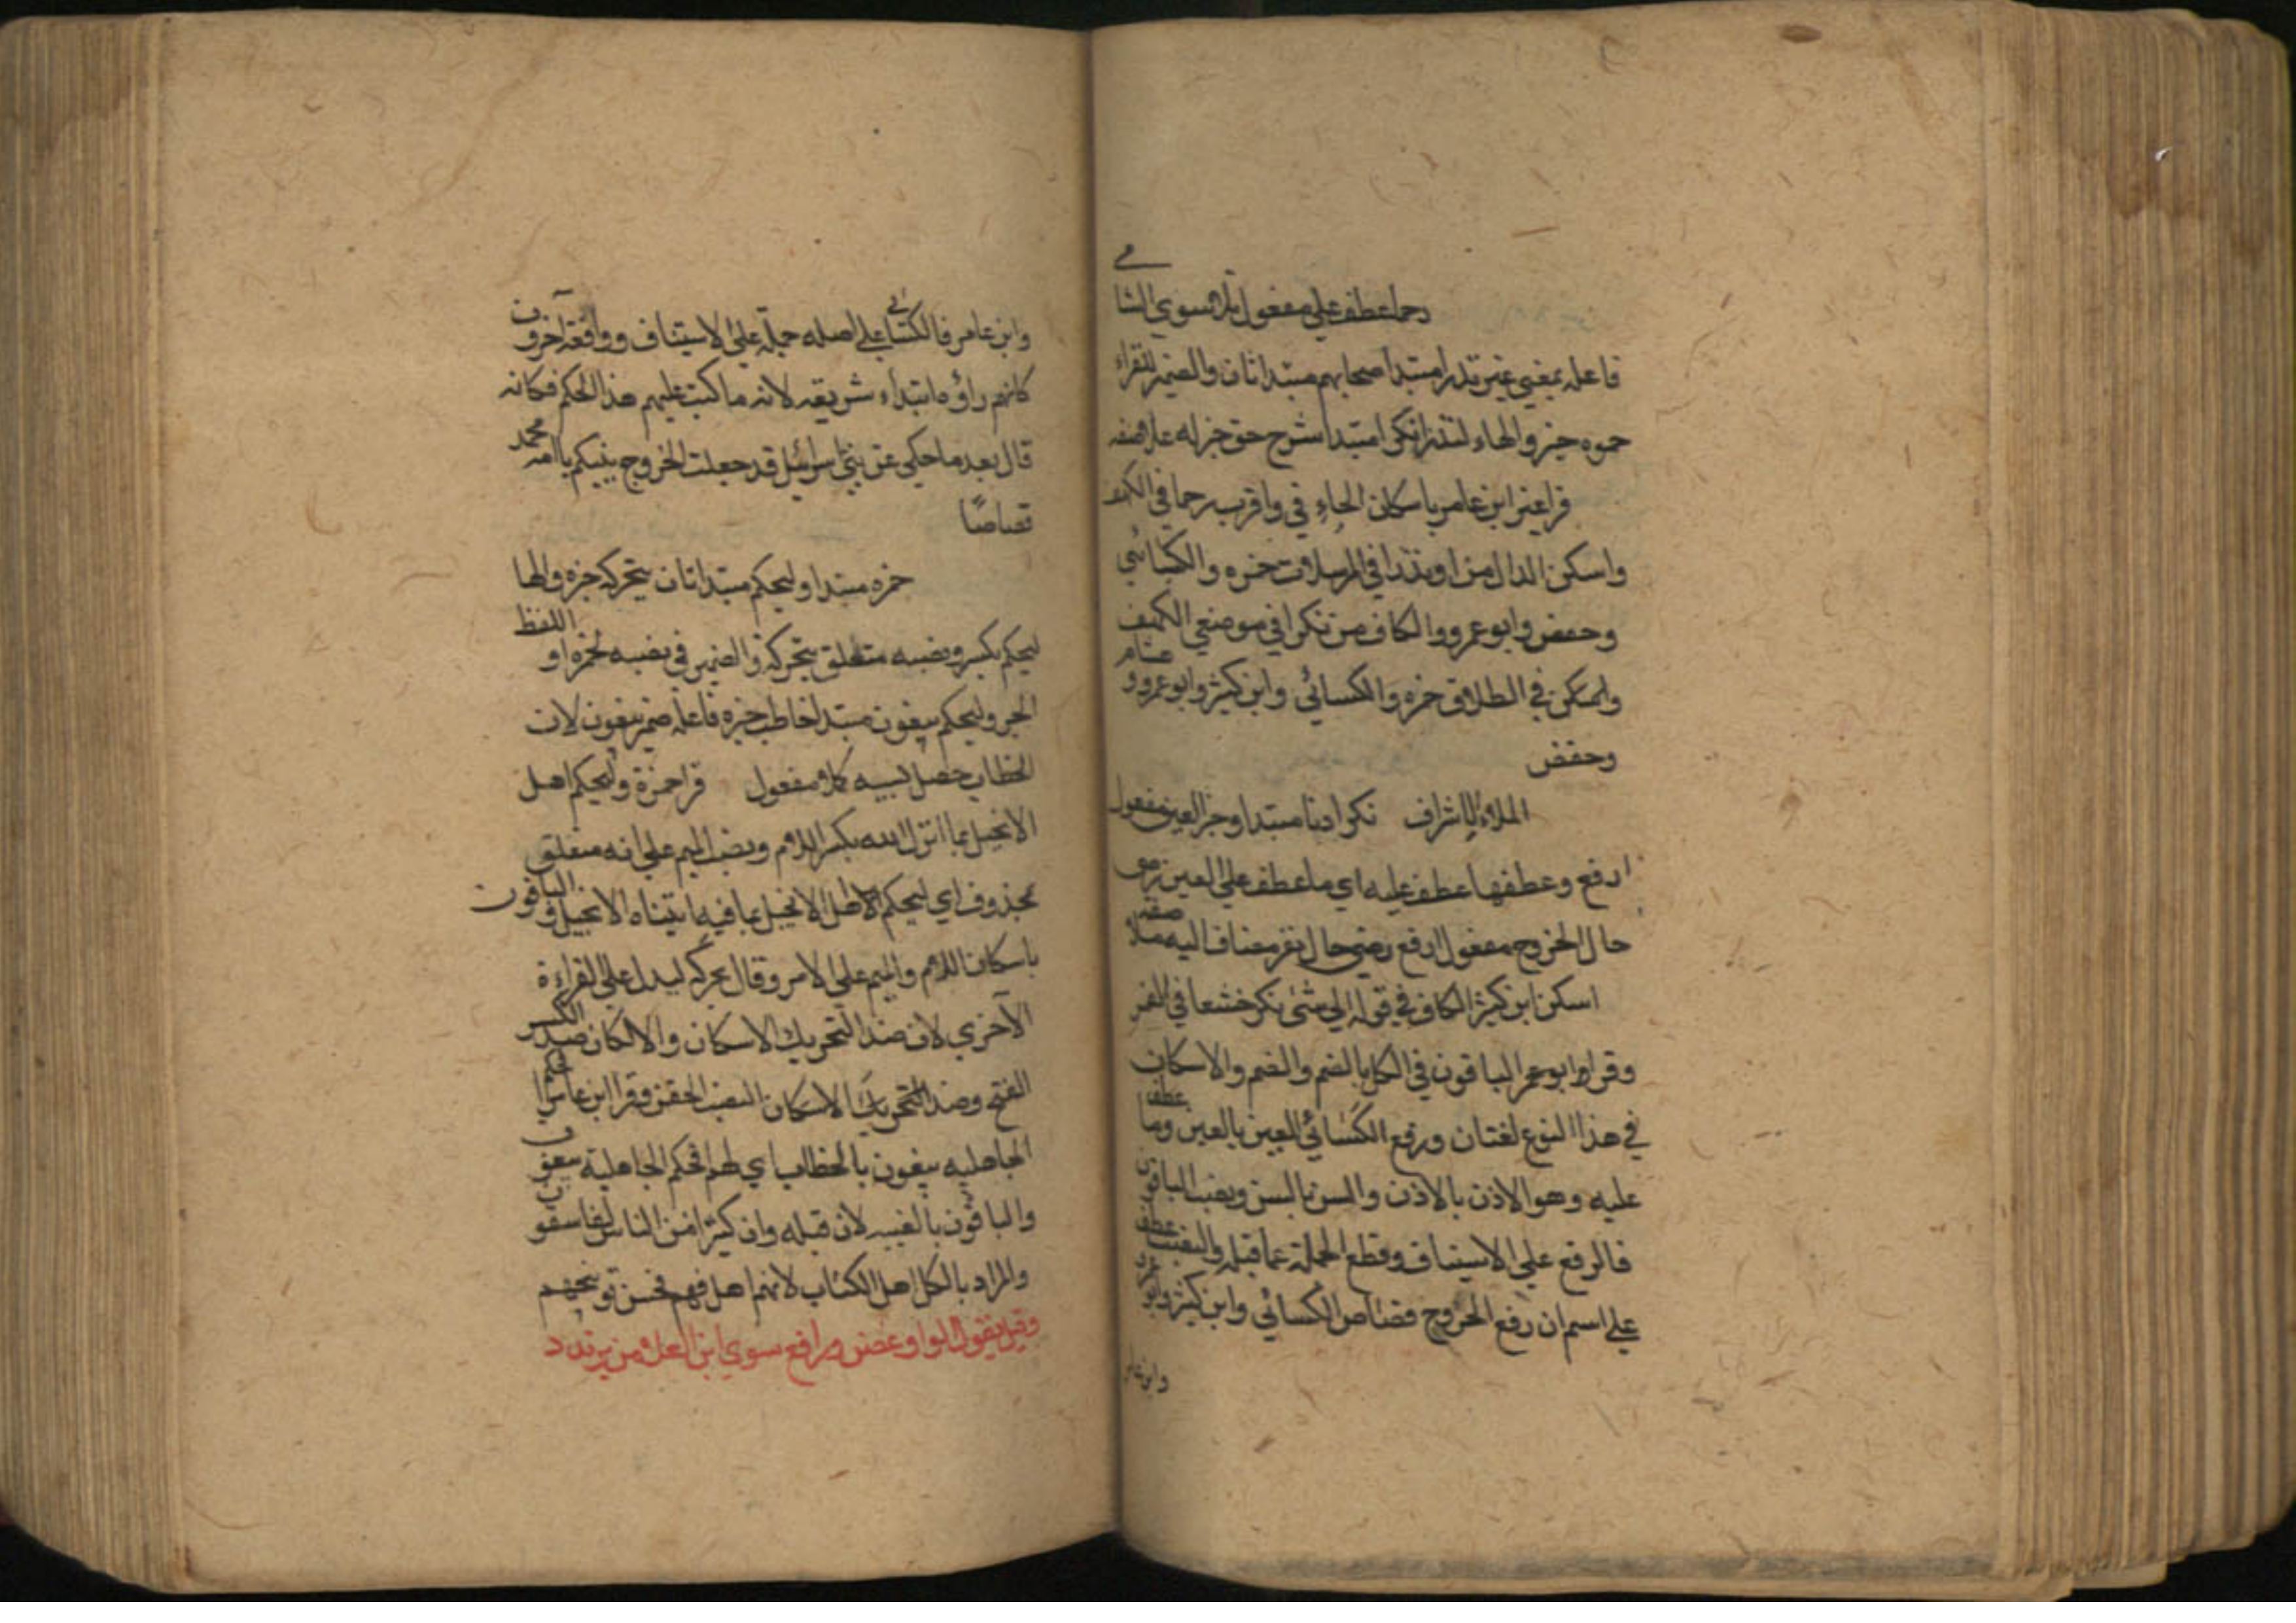 رحما عطف علي مفعول تلا سوي الشامي
فاعله بمعني غير نذرا مبتدا صحابهم مبتدا ثان والضمير للقراء
حموه خبر والهاء لنذرا نكرا مبتدا شرح حق خبر له علا صفه
قرا غير ابن عامر باسكان الحاء في واقرب رحما في الكهف
واسكن الدال من او نذرا في المرسلات حمزه والكسائي
وحفص وابو عمرو والكاف من نكرا في موضعي الكهف
والمكن في الطلاق حمزه والكسائي وابن كثير وابو عمرو وهشام
وحفص
الملاء الاشراف نكرا دنا مبتدا وخبر العين مفعول
ارفع وعطفها عطف عليه اي ما عطف علي العين رضي
حال الجروح مفعول ارفع رضي حال نفر مضاف اليه ملا صفته
اسكن ابن كثير الكاف في قوله الي شئ نكر خشعا في القمر
وقرا وابو عمر الباقون في الكل بالضم والضم والاسكان
في هذا النوع لغتان ورفع الكسائي العين بالعين وما عطف
عليه وهو الاذن بالاذن والسن بالسن ونصب الباقون
فالرفع علي الاستيناف وقطع الجملة عما قبله والنصب عطف
علي اسم ان رفع الجروح قصاص الكسائي وابن كثير وابو عمرو
وابن عامر
وابن عامر فالكسائي علي اصله حمله علي الاستيناف ووافقه آخرون
كانهم راؤه ابتداء شريعه لانه ما كتب عليهم هذا الحكم فكانه
قال بعد ما حكي عن بني اسرائيل قد جعلت الجروح بينكم يا امه محمد
قصاصًا
حمزه مبتدا وليحكم مبتدا ثان يحركه خبره والها
ليحكم بكسر ونصبه متعلق بتحركه والضمير في نصبه لحمزه او اللفظ
الخبر وليحكم يبغون مبتدا خاطب خبره فاعله ضمير يبغون لان
الخطاب حصل بسببه كلا مفعول قرا حمزة وليحكم اهل
الانجيل بما انزل الله بكسر اللام ونصب الميم علي انه متعلق
بمحذوف اي ليحكم اهل الانجيل بما فيه اتيناه الانجيل والباقون
باسكان اللام والميم علي الامر وقال يحركه ليدل علي القراءة
الآخري لان ضد التحريك الاسكان والا لكان ضد الكسر
الفتح وضد التحريك الاسكان النصب الخفض وقرا ابن عامر افحكم
الجاهليه يبغون بالخطاب اي لهم افحكم الجاهلية يبغون
والباقون بالغيبه لان قبله وان كثيرا من الناس لفاسقون
والمراد بالكل اهل الكتاب لانهم اهل فهم فحسن توبيخهم
وقبل يقول الواو غصن ورافع سوي ابن العلا من يرتدد